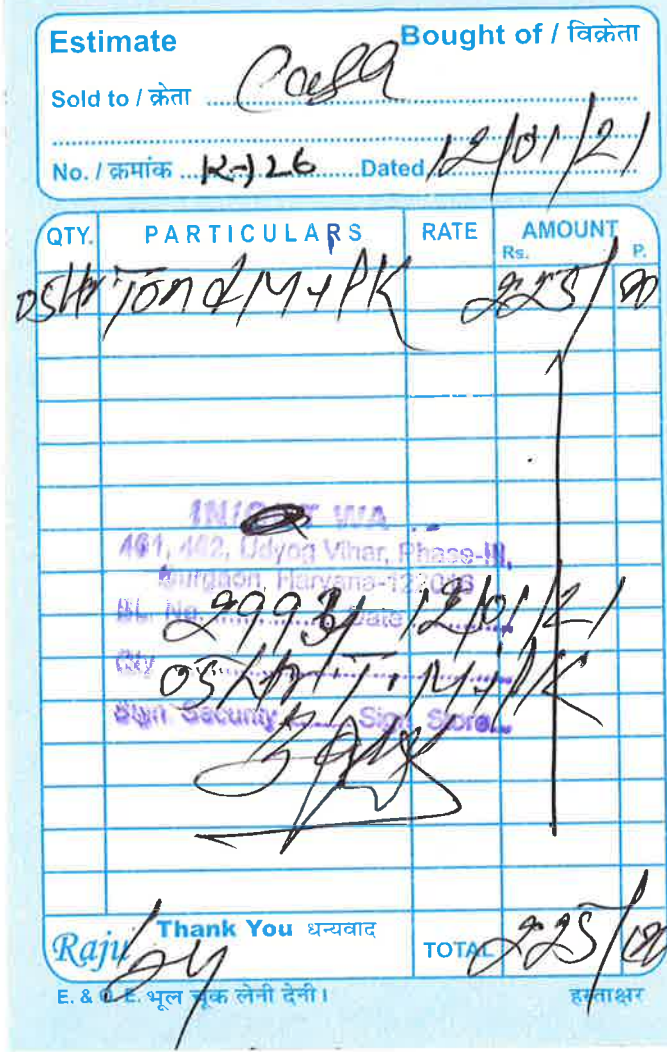 Estimate Bought of / विक्रेता
Sold to / क्रेता Cash
No. / क्रमांक R-126 Dated 12/01/21
QTY. PARTICULARS RATE AMOUNT
Rs. P.
05 Ltr Tond Milk 225/00
461, 462, Udyog Vihar, Phase-III,
Gurgaon, Haryana-122016
Bl. No. 2993 Date 12/01/21
Qty 05 Ltr T. Milk
Sign Security Sign Store
Raju Thank You धन्यवाद TOTAL 225/00
E. & O. E. भूल चूक लेनी देनी। हस्ताक्षर